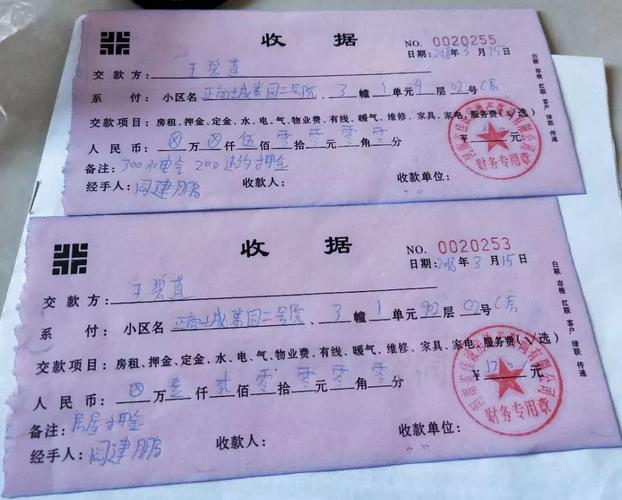 收 据
NO. 0020255
日期:2018年3月15日
交 款 方: 王翠莲
系 付: 小区名 正商 城 园二号院、3幢1单元9层02号C房
交款项目: 房租、押金、定金、水、电、气、物业费、有线、暖气、维修、家具、家电、服务费(√选)
人 民 币: 万 仟伍佰零拾零元零角零分 ¥ 元
备注: 300水电气 200违约押金
经手人: 闫建鹏 收款人: 收款单位:
财务专用章
白联 存根 红联 客户 绿联 传递
收 据
NO. 0020253
日期:2018年3月15日
交 款 方: 王翠莲
系 付: 小区名 正商 城 园二号院、3幢1单元902层02号C房
交款项目: 房租、押金、定金、水、电、气、物业费、有线、暖气、维修、家具、家电、服务费(√选)
人 民 币: 万壹仟贰佰零拾零元零角零分 ¥ 元
备注: 押金
经手人: 闫建鹏 收款人: 收款单位:
财务专用章
白联 存根 红联 客户 绿联 传递